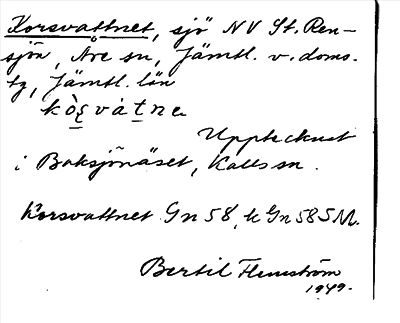 Korsvattnet, sjö NV St. Ren-
sjön, Åre sn, Jämtl. v. doms.
tg, Jämtl. län
Upptecknat
i Baksjönäset, Kalls sn.
Korsvattnet Gn 58, k Gn 58 SM.
Bertil Flemström
1949.